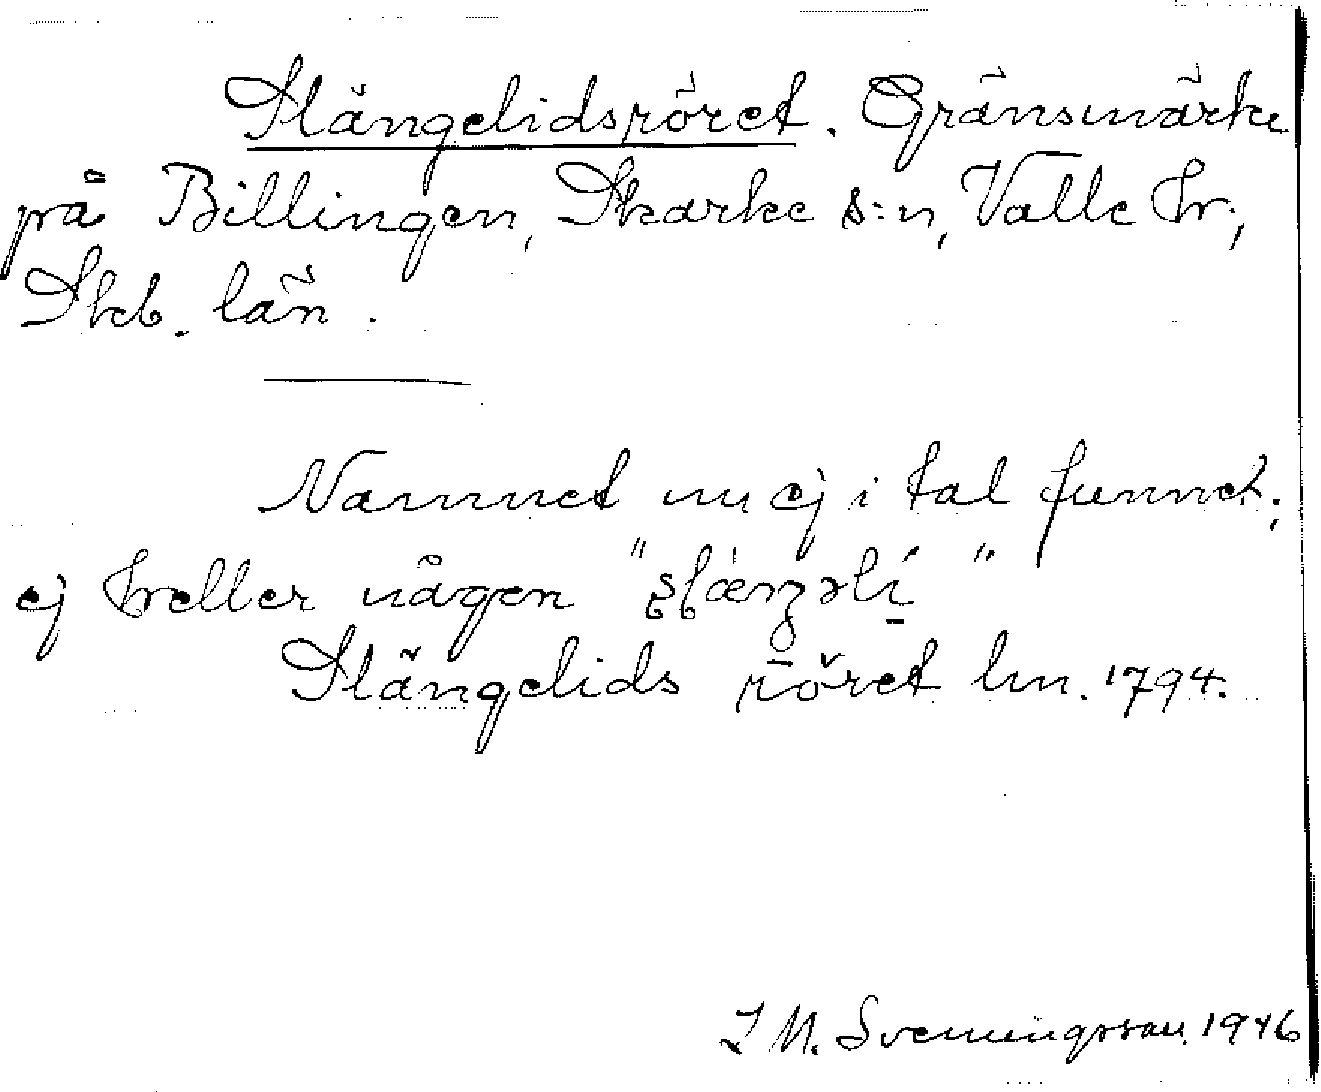 Slängelidsröret. Gränsmärke
på Billingen, Skarke s:n, Valle hr;
Skb. län.
Namnet nu ej i tal funnet;
ej heller någon
Slängelids röret lm. 1794.
I M. Svenungsson 1946